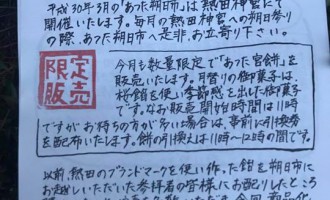 平成30年5月の「あった朔日市」は熱田神宮にて
開催いたします。毎月の熱田神宮への朔日参り
の際、あった朔日市へ是非、お立寄り下さい。
限定
販売
今月も数量限定で「あった宮餅」を
販売いたします。月替りの御菓子は、
桜餡を使い季節感を出した御菓子
です。なお販売開始時間は11時
ですがお待ちの方が多い場合は、事前に引換券
を配布いたします。餅の引換えは11時〜12時の間です。
以前、熱田のブランドマークを使い作った飴を朔日市に
お越しいただいた参拝者の皆様にお配りしたところ